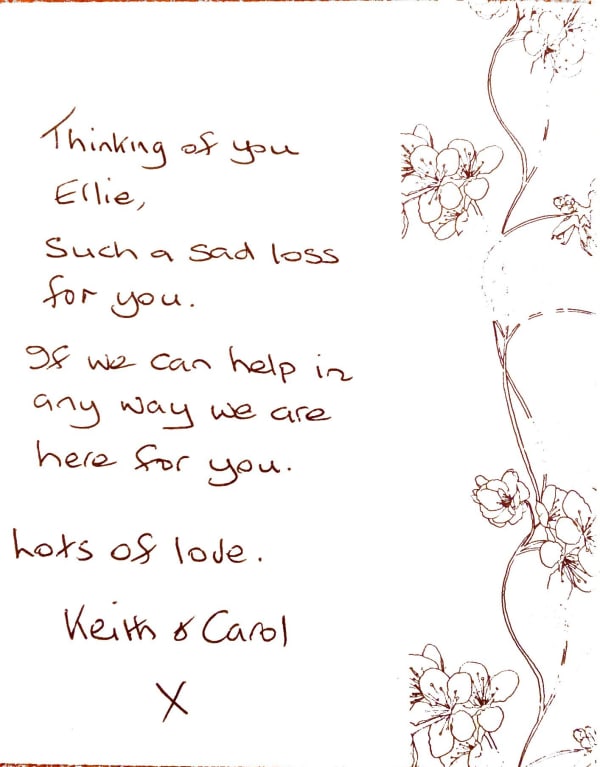 Thinking of you
Ellie,
Such a sad loss
for you.
If we can help in
any way we are
here for you.
Lots of love.
Keith & Carol
X